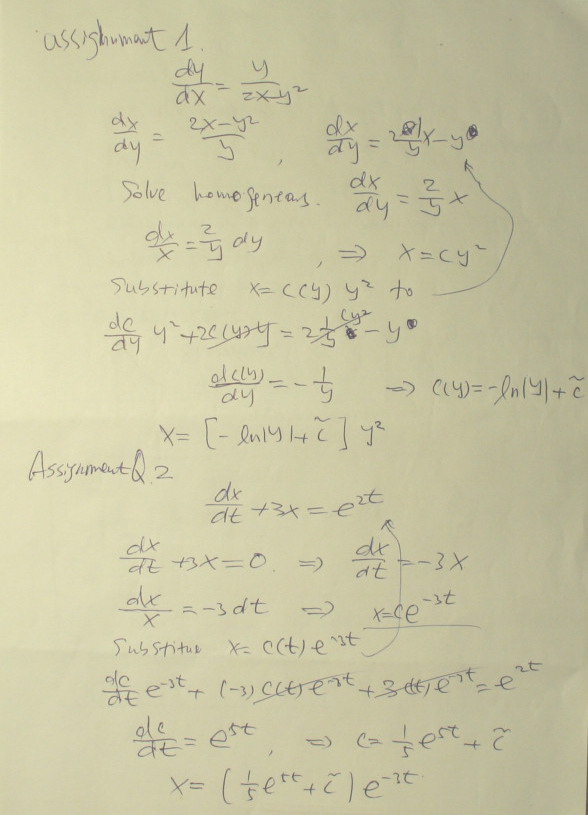 assignment 1.
dy/dx = y/(2x-y²)
dx/dy = (2x-y²)/y , dx/dy = 2 1/y x - y
Solve homogeneous. dx/dy = 2/y x
dx/x = 2/y dy , ⇒ x = cy²
Substitute x = c(y) y² to
dc/dy y² + 2c(y)y = 2 1/y cy² - y
dc(y)/dy = -1/y ⇒ c(y) = -ln|y| + c̃
x = [-ln|y| + c̃] y²
Assignment Q.2
dx/dt + 3x = e^{2t}
dx/dt + 3x = 0. ⇒ dx/dt = -3x
dx/x = -3dt ⇒ x = ce^{-3t}
Substitue x = c(t)e^{-3t}
dc/dt e^{-3t} + (-3)c(t)e^{-3t} + 3c(t)e^{-3t} = e^{2t}
dc/dt = e^{5t} , ⇒ c = 1/5 e^{5t} + c̃
x = (1/5 e^{5t} + c̃) e^{-3t}